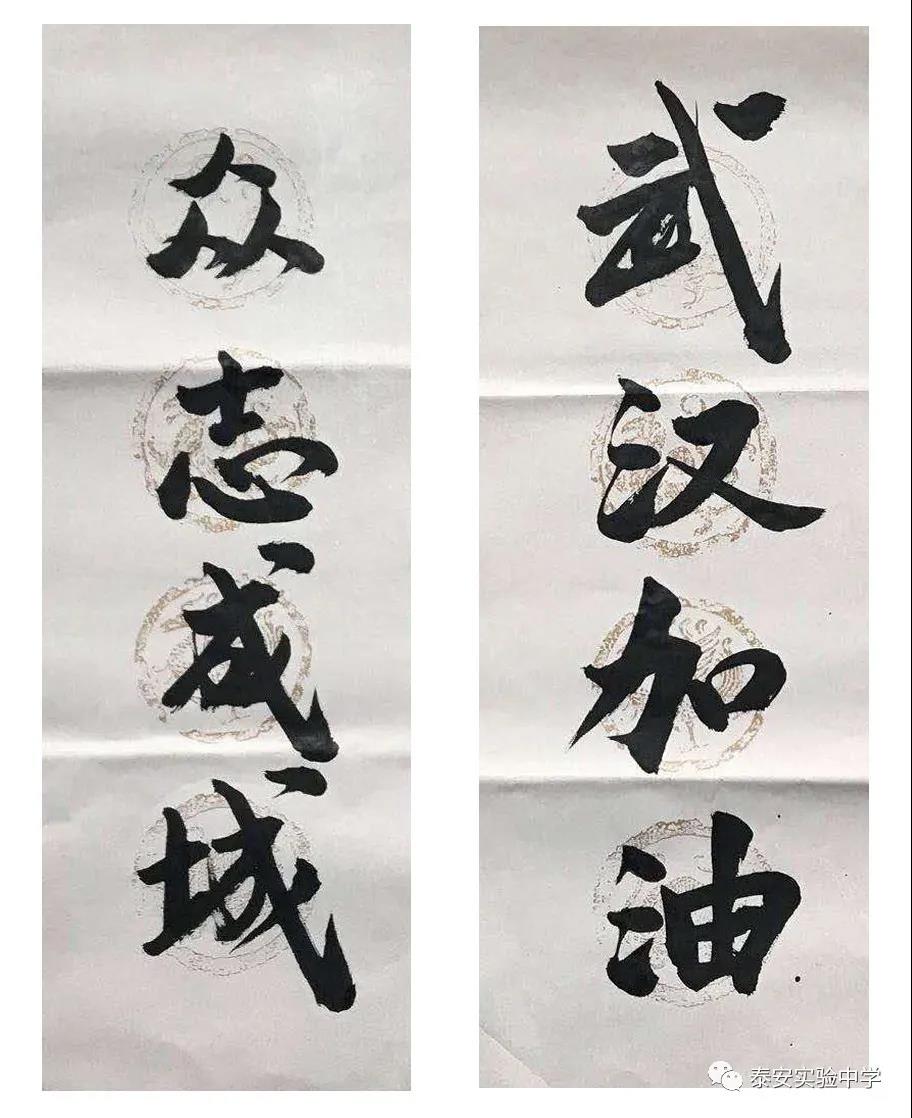 武汉加油
众志成城
泰安实验中学